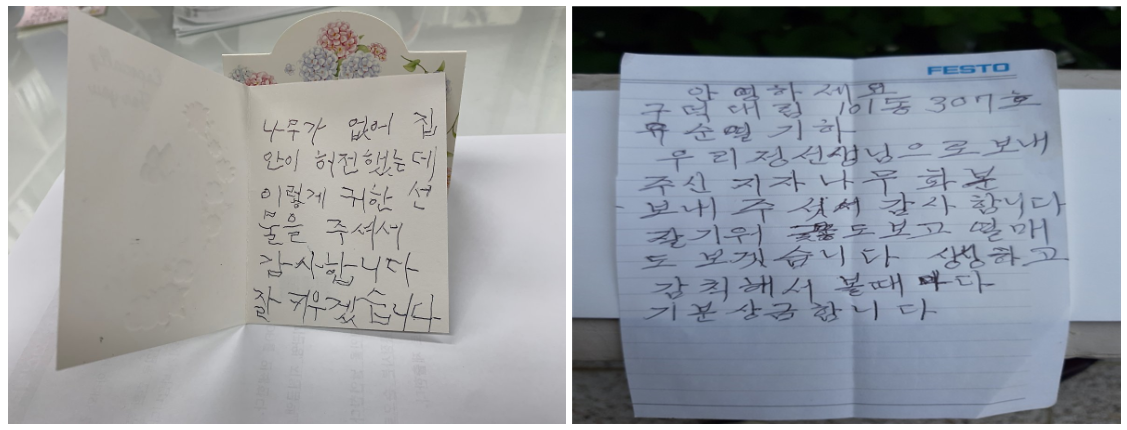 나무가 없어 집
안이 허전했는데
이렇게 귀한 선
물을 주셔서
감사합니다
잘 키우겠습니다
FESTO
안영하세요
구덕대림 101동 307호
우리정선생님으로보내
주신 치자나무화분
보내 주셔서 감사 합니다
잘기워 꽃도보고 열매
도 보겟습니다 싱싱하고
감칙해서 볼때 마다
기분상금합니다